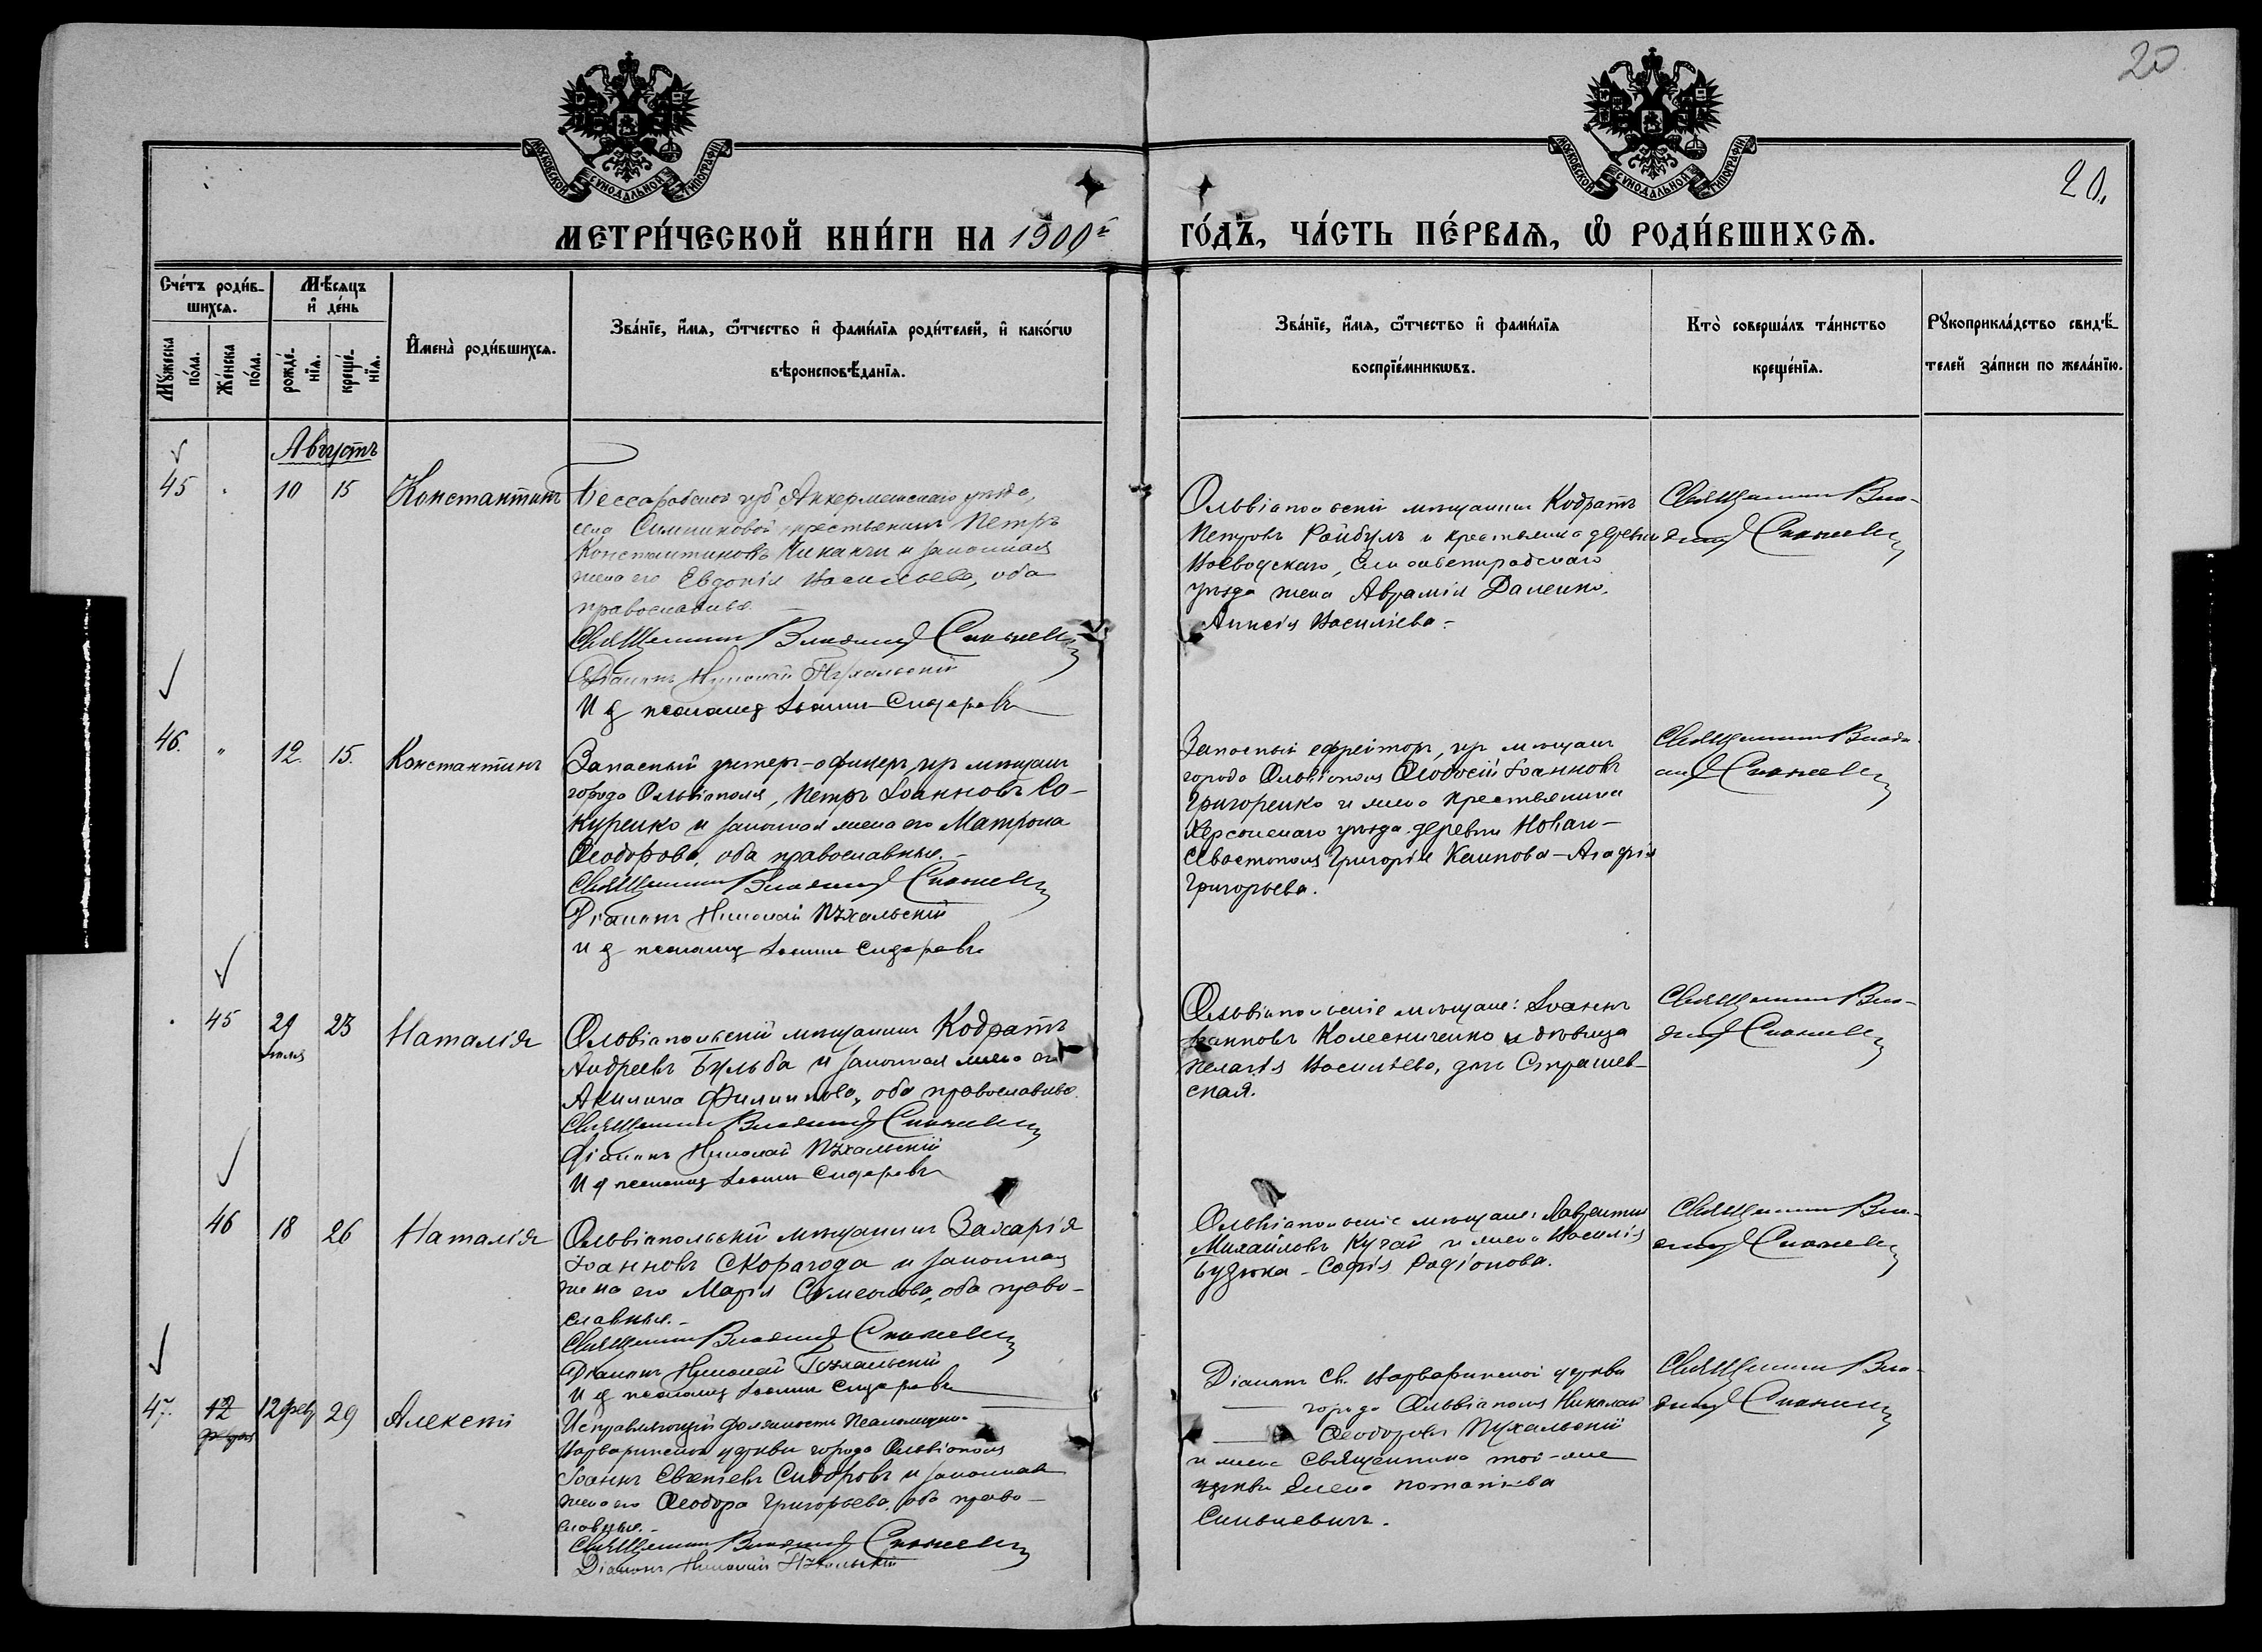 20
20.
МОСКОВСКОЙ СѴНОДАЛЬНОЙ ТИПОГРАФІИ
МОСКОВСКОЙ СѴНОДАЛЬНОЙ ТИПОГРАФІИ
МЕТРИ́ЧЕСКОЙ КНИ́ГИ НА 1900й ГО́ДЪ, ЧА́СТЬ ПЕ́РВАѦ, Ѡ҆ РОДИ́ВШИХСѦ.
Сче́тъ роди́в-
шихсѧ.
Мꙋ́жеска
по́ла.
Же́нска
по́ла.
Мѣ́сѧцъ
и҆ де́нь
рожде́-
нїѧ.
креще́-
нїѧ.
И҆мена̀ роди́вшихсѧ.
Зва́нїе, и҆́мѧ, ѻ҆́тчество и҆ фами́лїѧ роди́телей, и҆ како́гѡ
вѣроисповѣ́данїѧ.
Зва́нїе, и҆́мѧ, ѻ҆́тчество и҆ фами́лїѧ
воспрїе́мникѡвъ.
Кто̀ соверша́лъ та́инство
креще́нїѧ.
Рꙋкоприкла́дство свидѣ́-
телей за́писи по жела́нїю.
Августъ
45
10
15
Константинъ
Бессарабской губ. Аккерманскаго уѣзда,
села крестьянинъ Петръ
Константиновъ и законная
жена его Евдокія Васильева, оба
православные.
Священникъ Владимір
Діаконъ Николай Пухальскій
И д псаломщ Іоаннъ Сидоровъ
Ольвіопольскій мѣщанинъ Кодратъ
Петровъ Райбулъ и крестьянина деревни
Воеводскаго, Елисаветградскаго
уѣзда жена Авраміи Даленко,
Анисія Василіева.-
Священникъ Вла-
димір
46.
"
12.
15.
Константинъ
Запасный унтеръ-офицеръ, мѣщан
города Ольвіополя, Петръ Іоанновъ Ко-
куренко и законная жена его Матрона
Ѳеодорова, оба православные.-
Священникъ Владимір
Діаконъ Николай Пухальскій
и д псаломщ Іоаннъ Сидоровъ
Запасный ефрейторъ, мѣщан
города Ольвіополя Ѳеодосій Іоанновъ
Григоренко и жена крестьянина
Херсонскаго уѣзда деревни Новаго-
Севастополя Григорія Климова-Агафія
Григорьева.
Священникъ Влади-
мір
45
29
Іюля
23
Наталія
Ольвіопольскій мѣщанинъ Кодратъ
Андреевъ Бульба и законная жена его
Акилина Филиппова, оба православные.
Священникъ Владимір
Діаконъ Николай Пухальскій
И д псаломщ Іоаннъ Сидоровъ
Ольвіопольскіе мѣщане: Іоаннъ
Іоанновъ Колесниченко и дѣвица
Пелагія Василіева, доч Страшев-
ская.
Священникъ Вла-
димір
46
18
26
Наталія
Ольвіопольскій мѣщанинъ Захарія
Іоанновъ Скорагода и законная
жена его Марія Сѵмеонова, оба право-
славные.-
Священникъ Владимір
Діаконъ Николай Пухальскій
И д псаломщ Іоаннъ Сидоровъ
Ольвіопольскіе мѣщане: Лаврентій
Михайловъ Кучай и жена Василія
Будзюка - Софія Родіонова.
Священникъ Вла-
димір
47.
12
12 фев
29
Алексѣй
Исправляющій должность псаломщика
Варваринской церкви города Ольвіополя
Іоаннъ Евѳиміевъ Сидоровъ и законная
жена его Ѳеодора Григорьева, оба право-
славные.-
Священникъ Владимір
Діаконъ Николай Пухальскій
Діаконъ Св. Варваринской церкви
города Ольвіополя Николай
Ѳеодоровъ Пухальскій
и жена Священника той-же
церкви Елена Потапіева
Синькевичъ.
Священникъ Вла-
димір